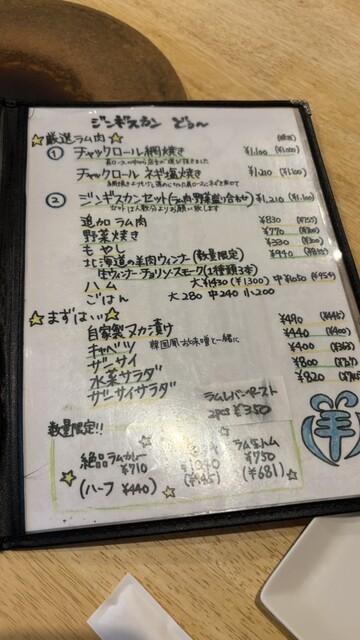 ジンギスカン どぅ〜
厳選ラム肉 (税抜)
① チャックロール網焼き ¥1,100 (¥1,000)
チャックロール ネギ塩焼き ¥1,210 (¥1,100)
② ジンギスカンセット(ラム肉・野菜盛り合わせ) ¥1,210 (¥1,100)
セットは人数分よりお願い致します
追加ラム肉 ¥830 (¥755)
野菜焼き ¥770 (¥700)
もやし ¥330 (¥300)
北海道の羊肉ウィンナー(数量限定) ¥940
生ウィンナー・チョリソー・スモーク(1種類3本)
ハム 大¥1430 (¥1300) 中¥1050 (¥954)
ごはん 大 280 中 240 小 200
まずはぃぃ
自家製ヌカ漬け ¥490 (¥445)
キャベツ 韓国風お味噌と一緒に ¥440 (¥400)
ザーサイ ¥400 (¥363)
水菜サラダ ¥800 (¥727)
ザーサイサラダ ¥820
ラムレバーペースト
2pcs ¥350
数量限定!!
絶品ラムカレー
¥710
(ハーフ ¥440)
ラム生トム
¥750
(¥681)
羊